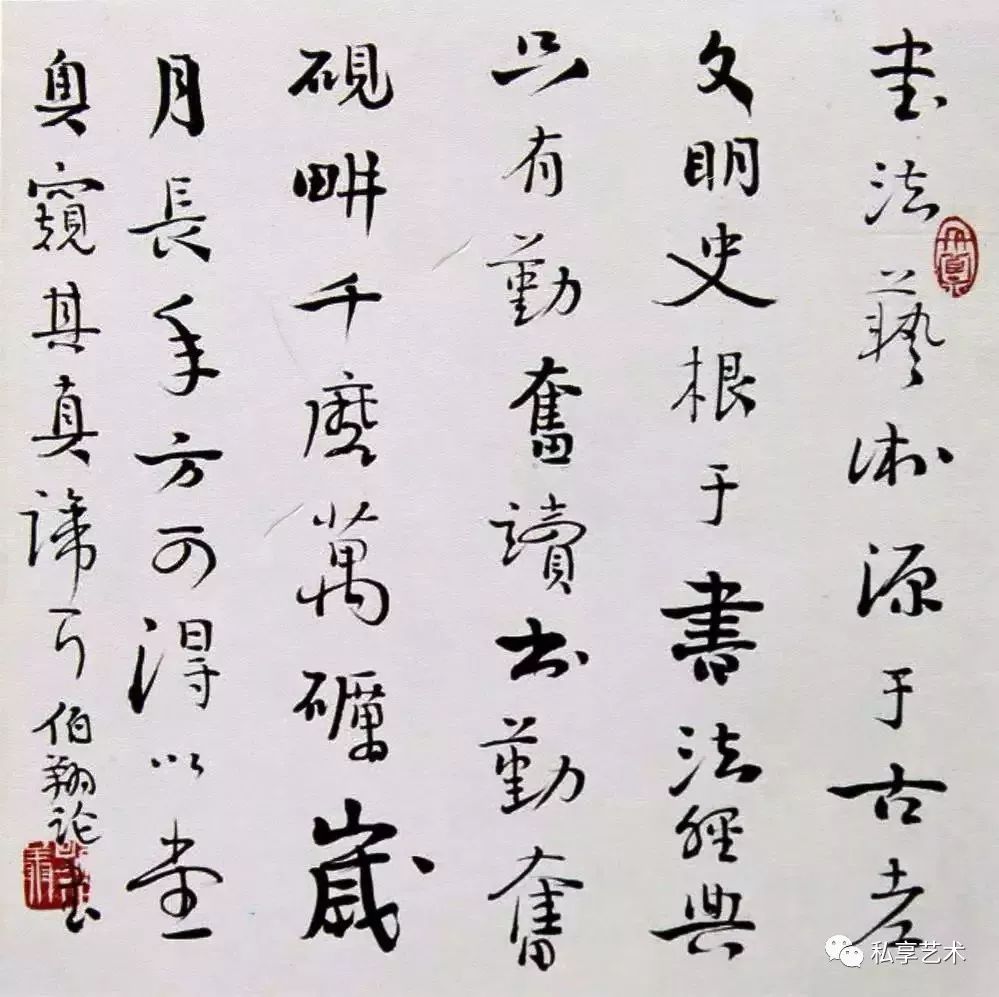 書法藝術源于古老
文明史根于書法經典
只有勤奮讀書勤奮
硯畊千磨萬礪歲
月長年方可得以堂
奥窺其真諦
伯翔论書
私享艺术